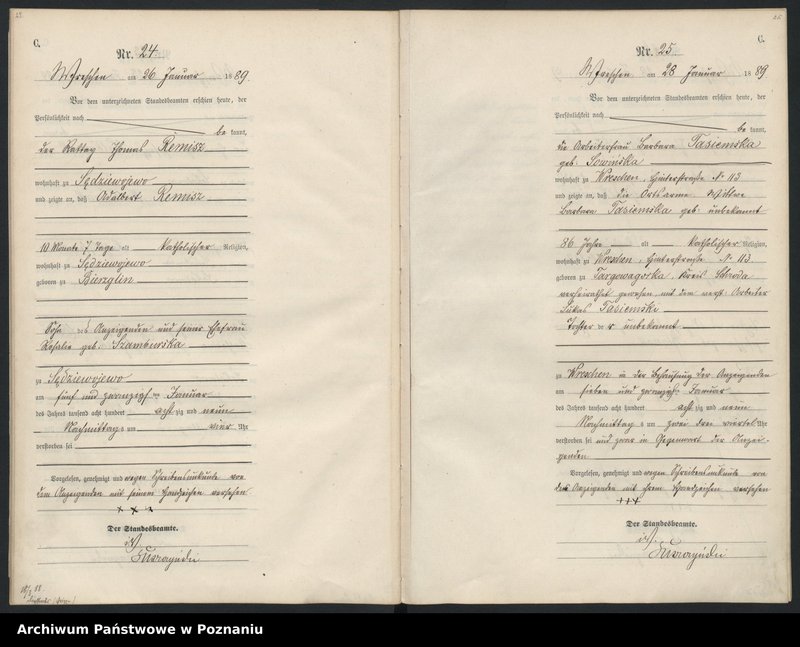 C.
Nr. 24.
Wreschen am 26 Januar 1889.
Vor dem unterzeichneten Standesbeamten erschien heute, der
Persönlichkeit nach
be kannt,
der Rattay Thomas Remisz
wohnhaft zu Sędziewojewo
und zeigte an, daß Adalbert Remisz
10 Monate 7 Tage alt katholischer Religion,
wohnhaft zu Sędziewojewo
geboren zu Bunzlin
Sohn des Anzeigenden und seiner Ehefrau
Rosalie geb: Szamburska
zu Sędziewojewo
am fünf und zwanzigsten Januar
des Jahres tausend acht hundert achtzig und neun
Nachmittags um vier Uhr
verstorben sei
Vorgelesen, genehmigt und wegen Schreibensunkunde von
dem Anzeigenden mit seinem Handzeichen versehen
x x x
Der Standesbeamte.
25
C.
Nr. 25.
Wreschen am 28 Januar 1889
Vor dem unterzeichneten Standesbeamten erschien heute, der
Persönlichkeit nach
be kannt,
die Arbeiterfrau Barbara Tasiemska
geb: Sowińska
wohnhaft zu Wreschen, Hinterstraße No 113
und zeigte an, daß die Ortsarme Wittwe
Barbara Tasiemska geb: unbekannt
86 Jahre alt katholischer Religion,
wohnhaft zu Wreschen, Hinterstraße No 113.
geboren zu Targowagorka, Kreis Schroda
verheirathet gewesen mit dem verst: Arbeiter
Lukas Tasiemski
Tochter der unbekannt
zu Wreschen in der Behausung der Anzeigenden
am sieben und zwanzigsten Januar
des Jahres tausend acht hundert achtzig und neun
Nachmittags um zwei drei viertel Uhr
verstorben sei und zwar in Gegenwart der Anzei-
genden
Vorgelesen, genehmigt und wegen Schreibensunkunde von
der Anzeigenden mit ihrem Handzeichen versehen
+++
Der Standesbeamte.
Archiwum Państwowe w Poznaniu